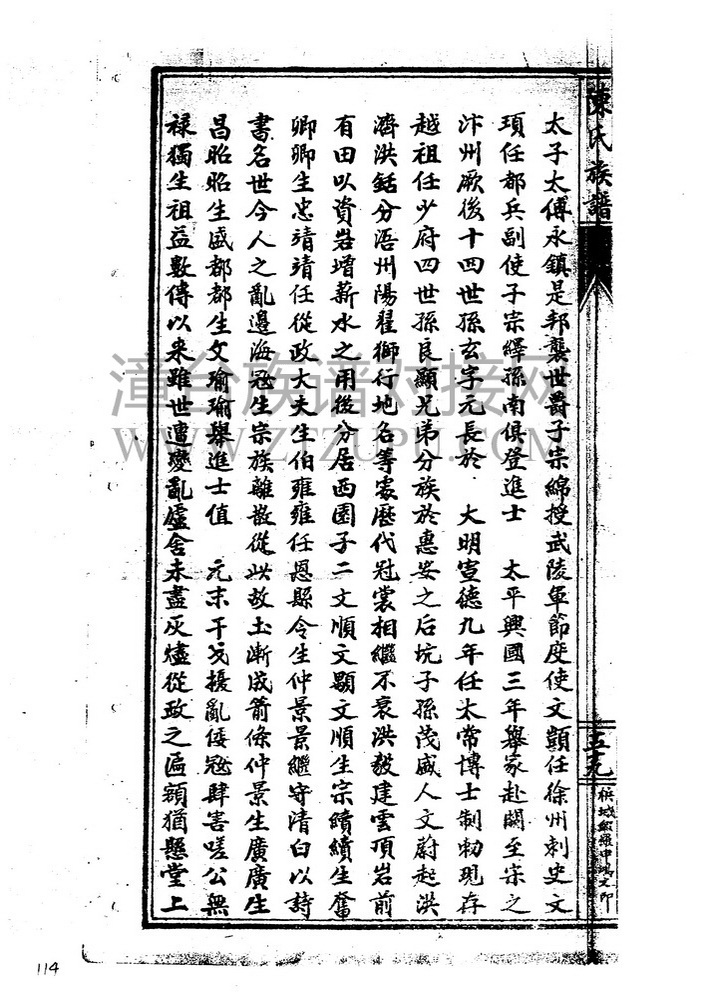 陳氏族譜
太子太傅永鎮是邦襲世爵子宗綿授武陵軍節度使文顗任徐州刺史文
頊任都兵副使子宗繹孫南俱登進士 太平興國三年舉家赴闕至宋之
汴州厥後十四世孫玄字元長於 大明宣德九年任太常博士制勅現存
越祖任少府四世孫良顯兄弟分族於惠安之后坑子孫茂盛人文蔚起洪
濟洪銛分浯州陽翟獅行地名等處歷代冠裳相繼不衰洪毅建雲頂岩前
有田以資岩增薪水之用後分居西園子二文順文顯文順生宗續續生奮
卿卿生忠靖靖任從政大夫生伯雍雍任恩縣令生仲景景繼守清白以詩
書名世今人之亂邊海冦生宗族離散從此故土漸成箭條仲景生廣廣生
昌昭昭生盛都都生文瑜瑜舉進士值 元末干戈擾亂倭冦肆害嗟公無
祿獨生祖益數傳以來雖世遭變亂廬舍未盡灰燼從政之匾額猶懸堂上
五九
漳台族谱对接网
WWW.ZTZUPU.COM
114